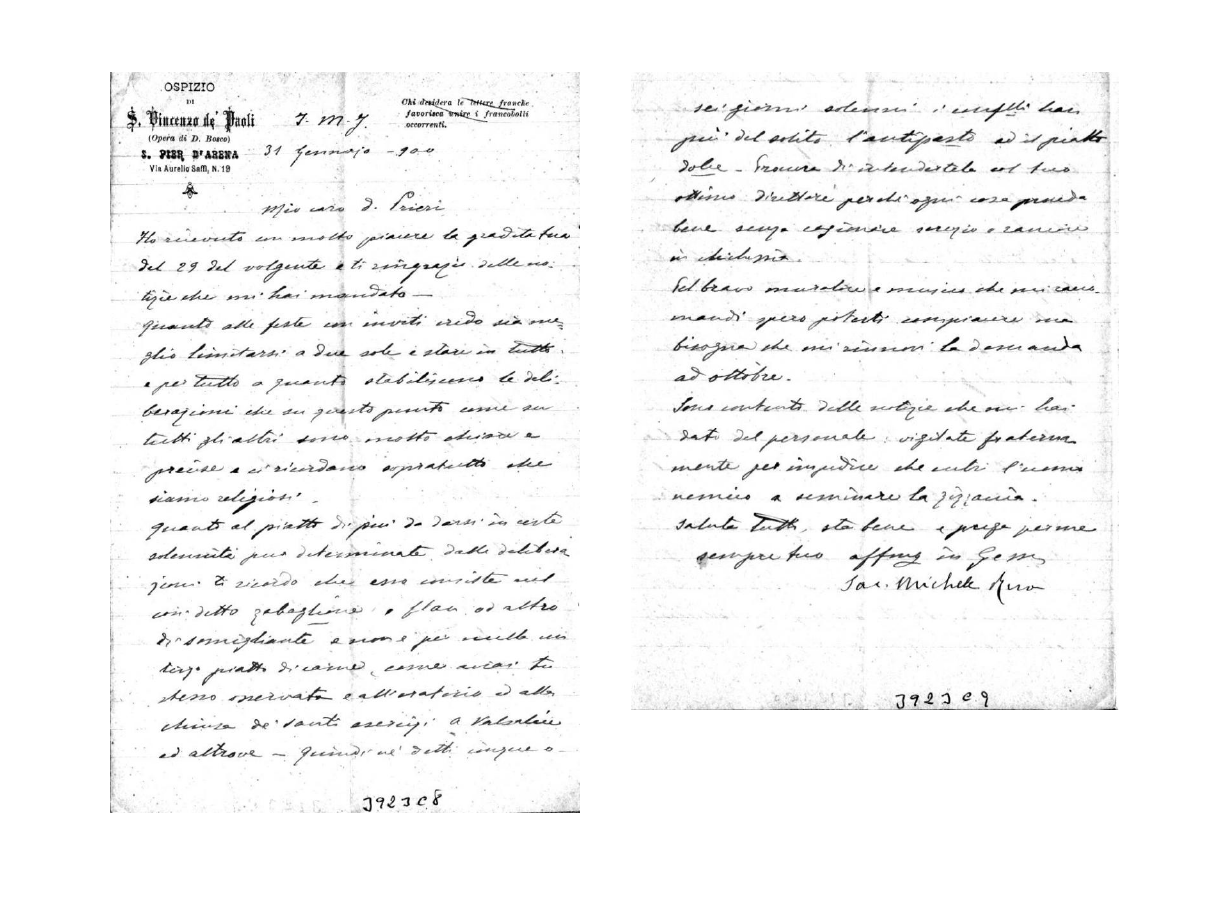 OSPIZIO
DI
S. Vincenzo de' Paoli
(Opera di D. Bosco)
S. PIER D'ARENA
Via Aurelio Saffi, N. 19
J. M. J.
Chi desidera le lettere franche
favorisca unire i francobolli
occorrenti.
31 Gennajo -900
Mio caro d. Prieri
Ho ricevuto con molto piacere la gradita tua
del 29 del volgente e ti ringrazio delle no-
tizie che mi hai mandato —
Quanto alle feste con inviti credo sia me=
glio limitarsi a due sole e stare in tutto
e per tutto a quanto stabiliscono le deli-
berazioni che su questo punto come su
tutti gli altri sono molto chiare e
precise e ci ricordano sopratutto che
siamo religiosi.
Quanto al piatto di più da darsi in certe
solennità pur determinate dalle delibera
zioni ti ricordo che esso consiste nel
così detto zabaglione o flan od altro
di somigliante e non è per nulla un
terzo piatto di carne, come avrai tu
stesso osservato e all'oratorio ed alla
chiusa de' santi esercizi a Valsalice
ed altrove — Quindi ne' detti cinque o
sei giorni solenni i conflli han
più del solito l'antipasto ed il piatto
dolce - Procura di intendertela col tuo
ottimo direttore perchè ogni cosa proceda
bene senza cagionare screzio o rancore
in chichessia.
Pel bravo muratore e musico che mi racco-
mandi spero poterti compiacere ma
bisogna che mi rinnovi la domanda
ad ottobre.
Sono contento delle notizie che mi hai
dato del personale: vigilate fraterna
mente per impedire che entri l'uomo
nemico a seminare la zizzania.
Saluta tutti, sta bene e prega per me
sempre tuo affmo in Gesù
Sac. Michele Rua
3923C8
3923C9